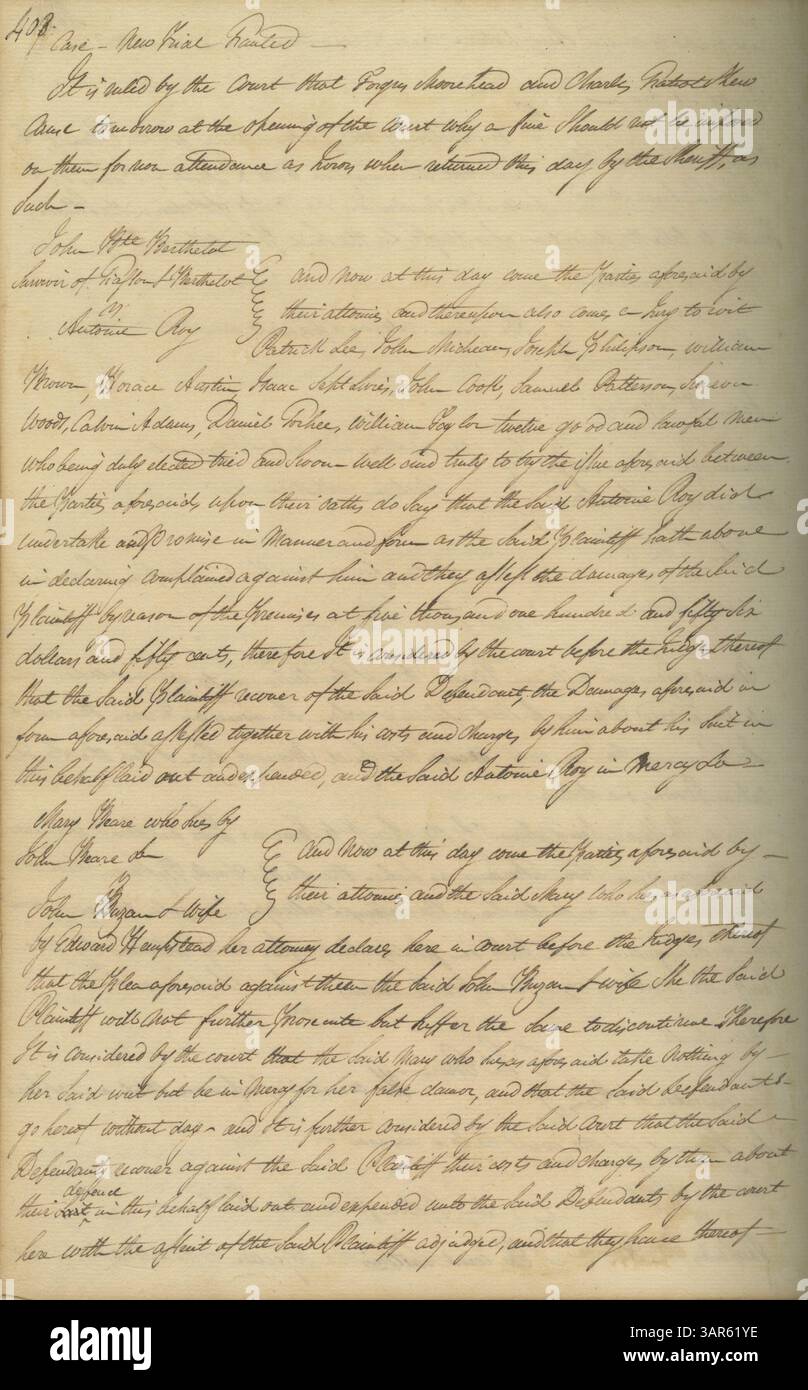 408.
Case – New Trial Granted –
It is ruled by the Court that Forgus Moorehead and Charles Gratiot Shew
Cause tomorrow at the opening of the Court why a fine Should not be imposed
on them for non attendance as Jurors when returned this day by the Sheriff, as
Such –
John Bte Berthelot
Survivor of & Berthelot
vs
Antoine Roy
and now at this day come the Parties aforesaid by
their attornies and thereupon also comes a Jury to wit
Patrick Lee, John Micheau, Joseph Philipson, William
Brown, Horace Austin, Isaac Septlivres, John Cook, Samuel Patterson, Simeon
Woods, Calvin Adams, Daniel William Taylor twelve good and lawful men
who being duly elected tried and Sworn well and truly to try the issue aforesaid between
the Parties aforesaid, upon their oaths do Say that the Said Antoine Roy did
undertake and Promise in Manner and form as the Said Plaintiff hath above
in declaring complained against him and they assess the damages of the Said
Plaintiff by reason of the Premises at five thousand one hundred and fifty Six
dollars and fifty cents, therefore It is considered by the court before the Judges thereof
that the Said Plaintiff recover of the Said Defendant, the Damages aforesaid in
form aforesaid assessed together with his costs and charges by him about his Suit in
this behalf laid out and expended, and the Said Antoine Roy in Mercy &c –
Mary Beare who Sues by
John Beare &c
vs
John Buzan & wife
and Now at this day come the Parties aforesaid by –
their attornies and the Said Mary who Sues as aforesaid
by Edward Hempstead her attorney declares here in Court before the Judges thereof
that the Plea aforesaid against them the Said John Buzan & wife She the Said
Plaintiff will Not further Prosecute but Suffer the Same to discontinue Therefore
It is considered by the court that the Said Mary who Sues as aforesaid take Nothing by –
her Said writ but be in Mercy for her false clamor, and that the Said Defendants –
go hereof without day – and It is further considered by the Said Court that the Said –
Defendants recover against the Said Plaintiff their costs and charges by them about
defence
their Suit in this behalf laid out and expended unto the Said Defendants by the court
here with the assent of the Said Plaintiff adjudged, and that they have thereof –
alamy
Image ID: 3AR61YE
www.alamy.com